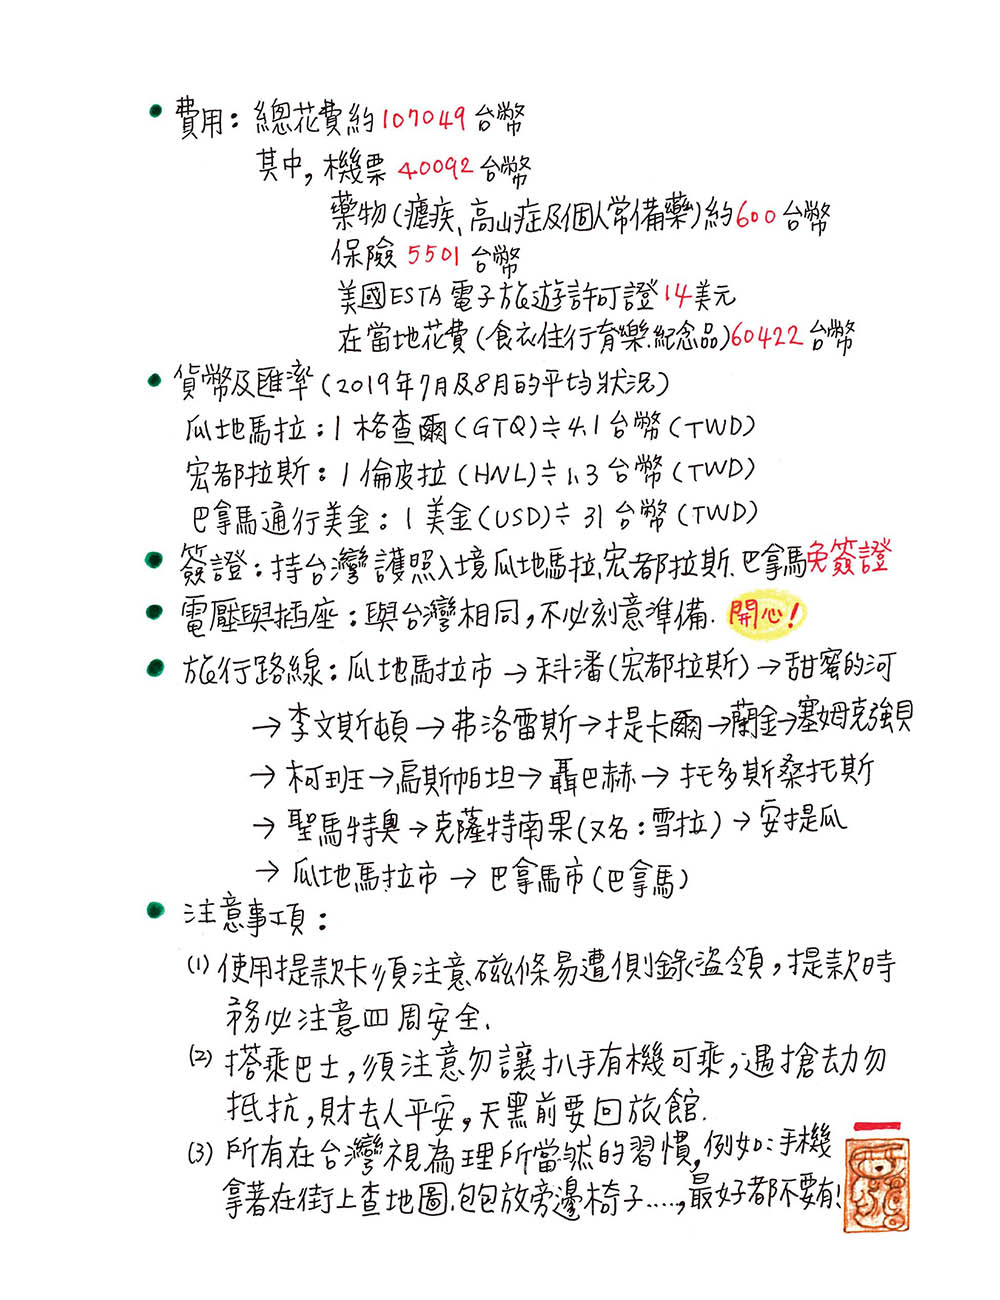 費用：總花費約107049台幣
其中，機票 40092 台幣
藥物(瘧疾、高山症及個人常備藥)約600台幣
保險 5501 台幣
美國ESTA電子旅遊許可證14美元
在當地花費(食衣住行育樂.紀念品)60422台幣
貨幣及匯率(2019年7月及8月的平均狀況)
瓜地馬拉：1 格查爾(GTQ)≒4.1台幣(TWD)
宏都拉斯：1 倫皮拉(HNL)≒1.3台幣(TWD)
巴拿馬通行美金：1美金(USD)≒31台幣(TWD)
簽證：持台灣護照入境瓜地馬拉、宏都拉斯、巴拿馬免簽證
電壓與插座：與台灣相同，不必刻意準備. 開心！
旅行路線：瓜地馬拉市→科潘(宏都拉斯)→甜蜜的河
→李文斯頓→弗洛雷斯→提卡爾→蘭金→塞姆克強貝
→柯班→烏斯帕坦→聶巴赫→托多斯桑托斯
→聖馬特奧→克薩特南果(又名：雪拉)→安提瓜
→瓜地馬拉市→巴拿馬市(巴拿馬)
注意事項：
(1)使用提款卡須注意磁條易遭側錄盜領，提款時
務必注意四周安全.
(2)搭乘巴士，須注意勿讓扒手有機可乘，遇搶劫勿
抵抗，財去人平安，天黑前要回旅館.
(3)所有在台灣視為理所當然的習慣，例如：手機
拿著在街上查地圖.包包放旁邊椅子.....，最好都不要有！